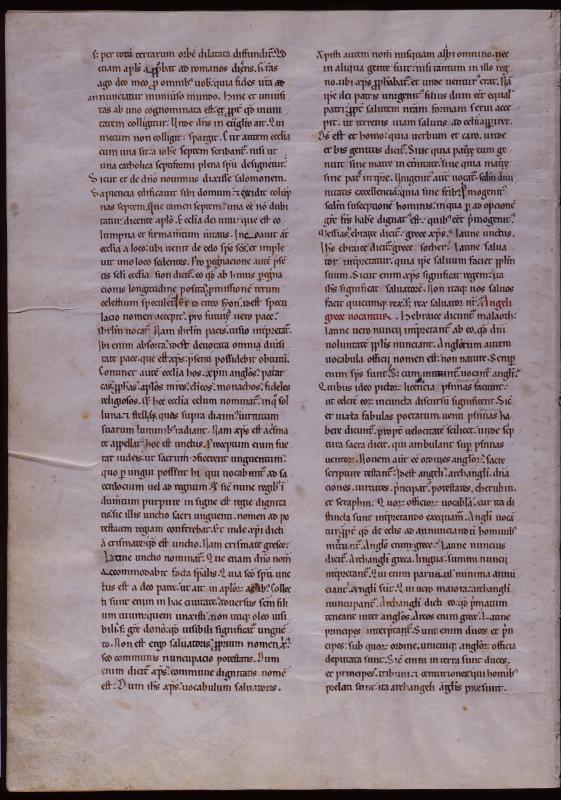 s; per totū terrarum orbē dilatata diffundit᷑. Qd
etiam apłs  ꝓbat ad romanos dicens. Gr̄as
ago deo meo ꝓ omnibus uob. quia fides ur̄a ad
annunciatur uniuerso mundo. Hinc et uniuersi
tas ab uno cognominata est. et ꝓpt quod in uni
tatem colligitur. Unde dn̄s in euḡlio ait. Qui
mecum non colligit: spargit. Cur autem ecclia
cum una sit. a iohe septem scribant᷑. nisi ut
una catholica septiformi plena spū designetur.
Sicut et de dn̄o nouimus dixisse salomonem.
Sapiencia edificauit sibi domum. et excidit colūp
nas septem. que tamen septem una eē nō dubi
tatur. dicente aplo. Ecclia dei uiui que est co
lumpna et firmamtum ueritatis. Incoauit aut̄
ecclia a loco. ubi uenit de celo spc̄ sc̄s. et imple
uit uno loco sedentes. Pro pegrinacione autē pse
tis sc̄li ecclia sion dicit᷑. eo qd ab huius pegna
cionis longitudine posita. pmissione rerum
celestium speculet᷑. Et id circo syon. idest specu
lacio nomen accepit. pro futura uero pace.
ihrlm̄ uocat᷑. Nam ihrlm̄ pacis. uisio int̄pretat᷑.
Ibi enim absorta. idest deuorata omnia diuisi
tate pace que est xp̄s. p̄senti possidebit obtutu.
Continet autē ecclia hos. xp̄m. anglos. patiar
cas. pphas. aplos. mr̄es. clicos. monachos. fideles
religiosos. Et hec ecclia celum nominat᷑. inq sol
luna et stelle. quos supra diximus. uirtutum
suarum luminibus radiant. Nam xp̄s est a crisma
te appellatus. hoc est unctus. Preceptum enim fue
rat iudeis. ut sacrum conficerent unguentum.
quo perungui possent hi. qui uocabantur ad sa
cerdocium uel ad regnum. Et sic̄ nunc regibus in
dumtum purpure insigne est regie dignita
tis. sic illis unctio sacri unguenti. nomen ac po
testatem regiam conferebat. Et inde xp̄i dicti
a crismate. qd est unctio. Nam crismate grece.
Latine unctio nominat᷑. Que etiam dn̄o nom̄
accommodabit facta sp̄alis. Quia sc̄o spū. unc
tus est a deo patre. ut ait in aplorum actibus. Collec
ti sunt enim in hac ciuitate. aduersus sc̄m fili
um tuum. quem unxisti. non utiqꝫ oleo uisi
bili. s; gre dono. qd uisibili significat᷑ ungue
to. Non est ergo saluatoris ꝓprium nomen xp̄s.
sed communis nuncupacio potestatis. Dum
enim dicit᷑ xp̄s. commune dignitatis nom̄
est. Dum ih̄s xp̄s. uocabulum saluatoris.
Xpisti autem nom̄ nusquam alibi omnino. nec
in aliqua gente fuit. nisi tantum in illo reg
no. ubi xp̄s ꝓphabat᷑. et unde uentur erat. Nā
ip̄e dei patris unigenit᷑. filius dum eēt equal
patri. ꝓpt salutem nr̄am formam serui acce
pit. ut teneris uiam salutis ad celia pueniret.
Ds est et homo. quia uerbum et caro. unde
et bis genitus dicit᷑. Siue quia patꝫ eum ge
nuit sine matre in eternitate. siue quia mater
sine patre in tempore. Unigenit᷑ aut̄ uocat᷑. scdm diui
nitatis excellencia. quia sine frib. Primogenit᷑
scdm susceptione hominis. in qua p ad opcione
gre fr̄s habe dignat᷑ est. quibus eēt pmogenit᷑.
Messias. ebraice dicit᷑. grece xp̄s. Latine unctus.
Ih̄s ebraice dicit᷑. grece sother. Latine salua
tor int̄pretatur. quia ip̄e saluum faciet pplm̄
suum. Sicut enim xp̄s significat regem: ita
ih̄s significat saluatorē. Non itaqꝫ nos saluos
facit quicumqꝫ rex. s; rex saluator. Angeli
grece uocantur. Hebraice dicunt᷑ malaoth.
Latine uero nuncii int̄pretant᷑. ab eo. qd dn̄i
uoluntatē pplis nunciant. Anglorum autem
uocabula officii nomen est. non nature. Semp
enim sps̄ sunt. Si cum mittunt᷑. uocant᷑ angli.
Quibus ideo pictorum licencia pennas faciunt.
ut celere eorum incuncta discursū significent. Sic̄
et iuxta fabulas poetarum uenti pennas ha
bere dicunt᷑. ꝓpt uelocitate scilicet. unde scp
tura sacra dicit. qui ambulant sup pennas
uentorum. Nouem aut̄ eē ordines anglorum. sacre
scripture testant᷑. Idest angeli. archangli. dna
ciones. uirtutes. pncipat᷑. potestates. cherubin.
et seraphin. Quorum officiorum uocabla. cur ita di
stincta sunt int̄pretando exequam̄. Angli uoca
tur. ꝓpt qd de celis ad annunciandum hominibus
mittunt᷑. Anglis enim grece. Latine nuncius
dicit᷑. Archangli greca lingua. summi nuncii
int̄pretant᷑. Qui enim parua. uł minima annū
ciant. angli sunt. Qui uero maiora: archangli
nuncupant᷑. Archangli dicti eo. qd pmatum
teneant inter anglos. Arcos enim grece. Latine
principes int̄pretant᷑. Sunt enim duces et prin
cipes. sub quorum ordine. unicuiqꝫ anglorum officia
deputata sunt. Sic̄ enim in terra sunt duces.
et principes. tribuni. et centuriones. qui hominibus
prelati sunt. ita archangeli anglis presunt.